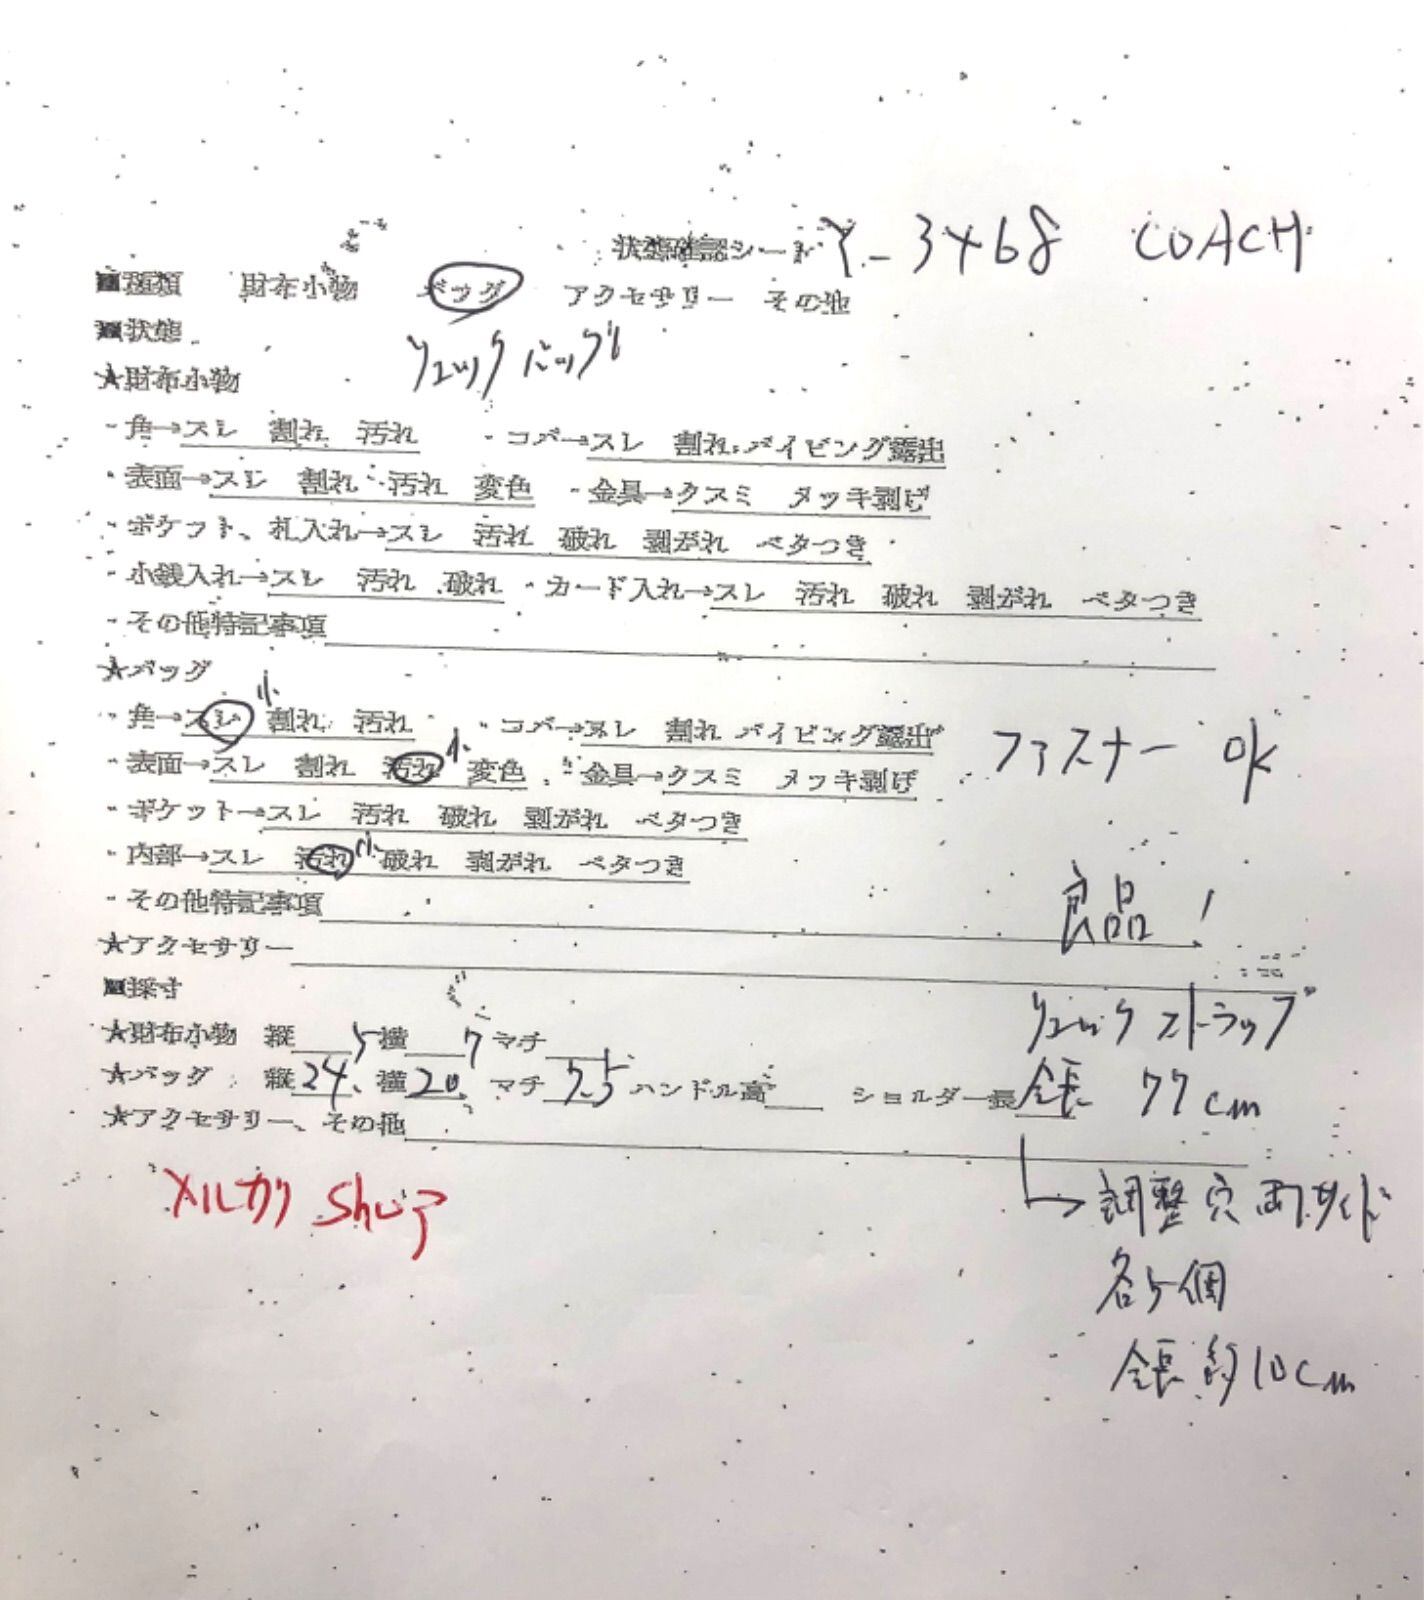 状態確認シート Y-3468 COACH
■種類 財布小物 バッグ アクセサリー その他
■状態 リュックバッグ
★財布小物
・角→スレ 割れ 汚れ ・コバ→スレ 割れ パイピング露出
・表面→スレ 割れ 汚れ 変色 ・金具→クスミ メッキ剥げ
・ポケット、札入れ→スレ 汚れ 破れ 剥がれ ベタつき
・小銭入れ→スレ 汚れ 破れ ・カード入れ→スレ 汚れ 破れ 剥がれ ベタつき
・その他特記事項
★バッグ
・角→スレ 小 割れ 汚れ ・コバ→スレ 割れ パイピング露出
・表面→スレ 割れ 汚れ 小 変色 ・金具→クスミ メッキ剥げ
ファスナー OK
・ポケット→スレ 汚れ 破れ 剥がれ ベタつき
・内部→スレ 汚れ 小 破れ 剥がれ ベタつき
・その他特記事項
良品!
★アクセサリー
■採寸
リュックストラップ
★財布小物 縦 横 マチ
★バッグ 縦24.5 横20.7 マチ7.5 ハンドル高 ショルダー長 全長 77cm
★アクセサリー、その他
→調整穴 両サイド
各5個
全長約10cm
メルカリ